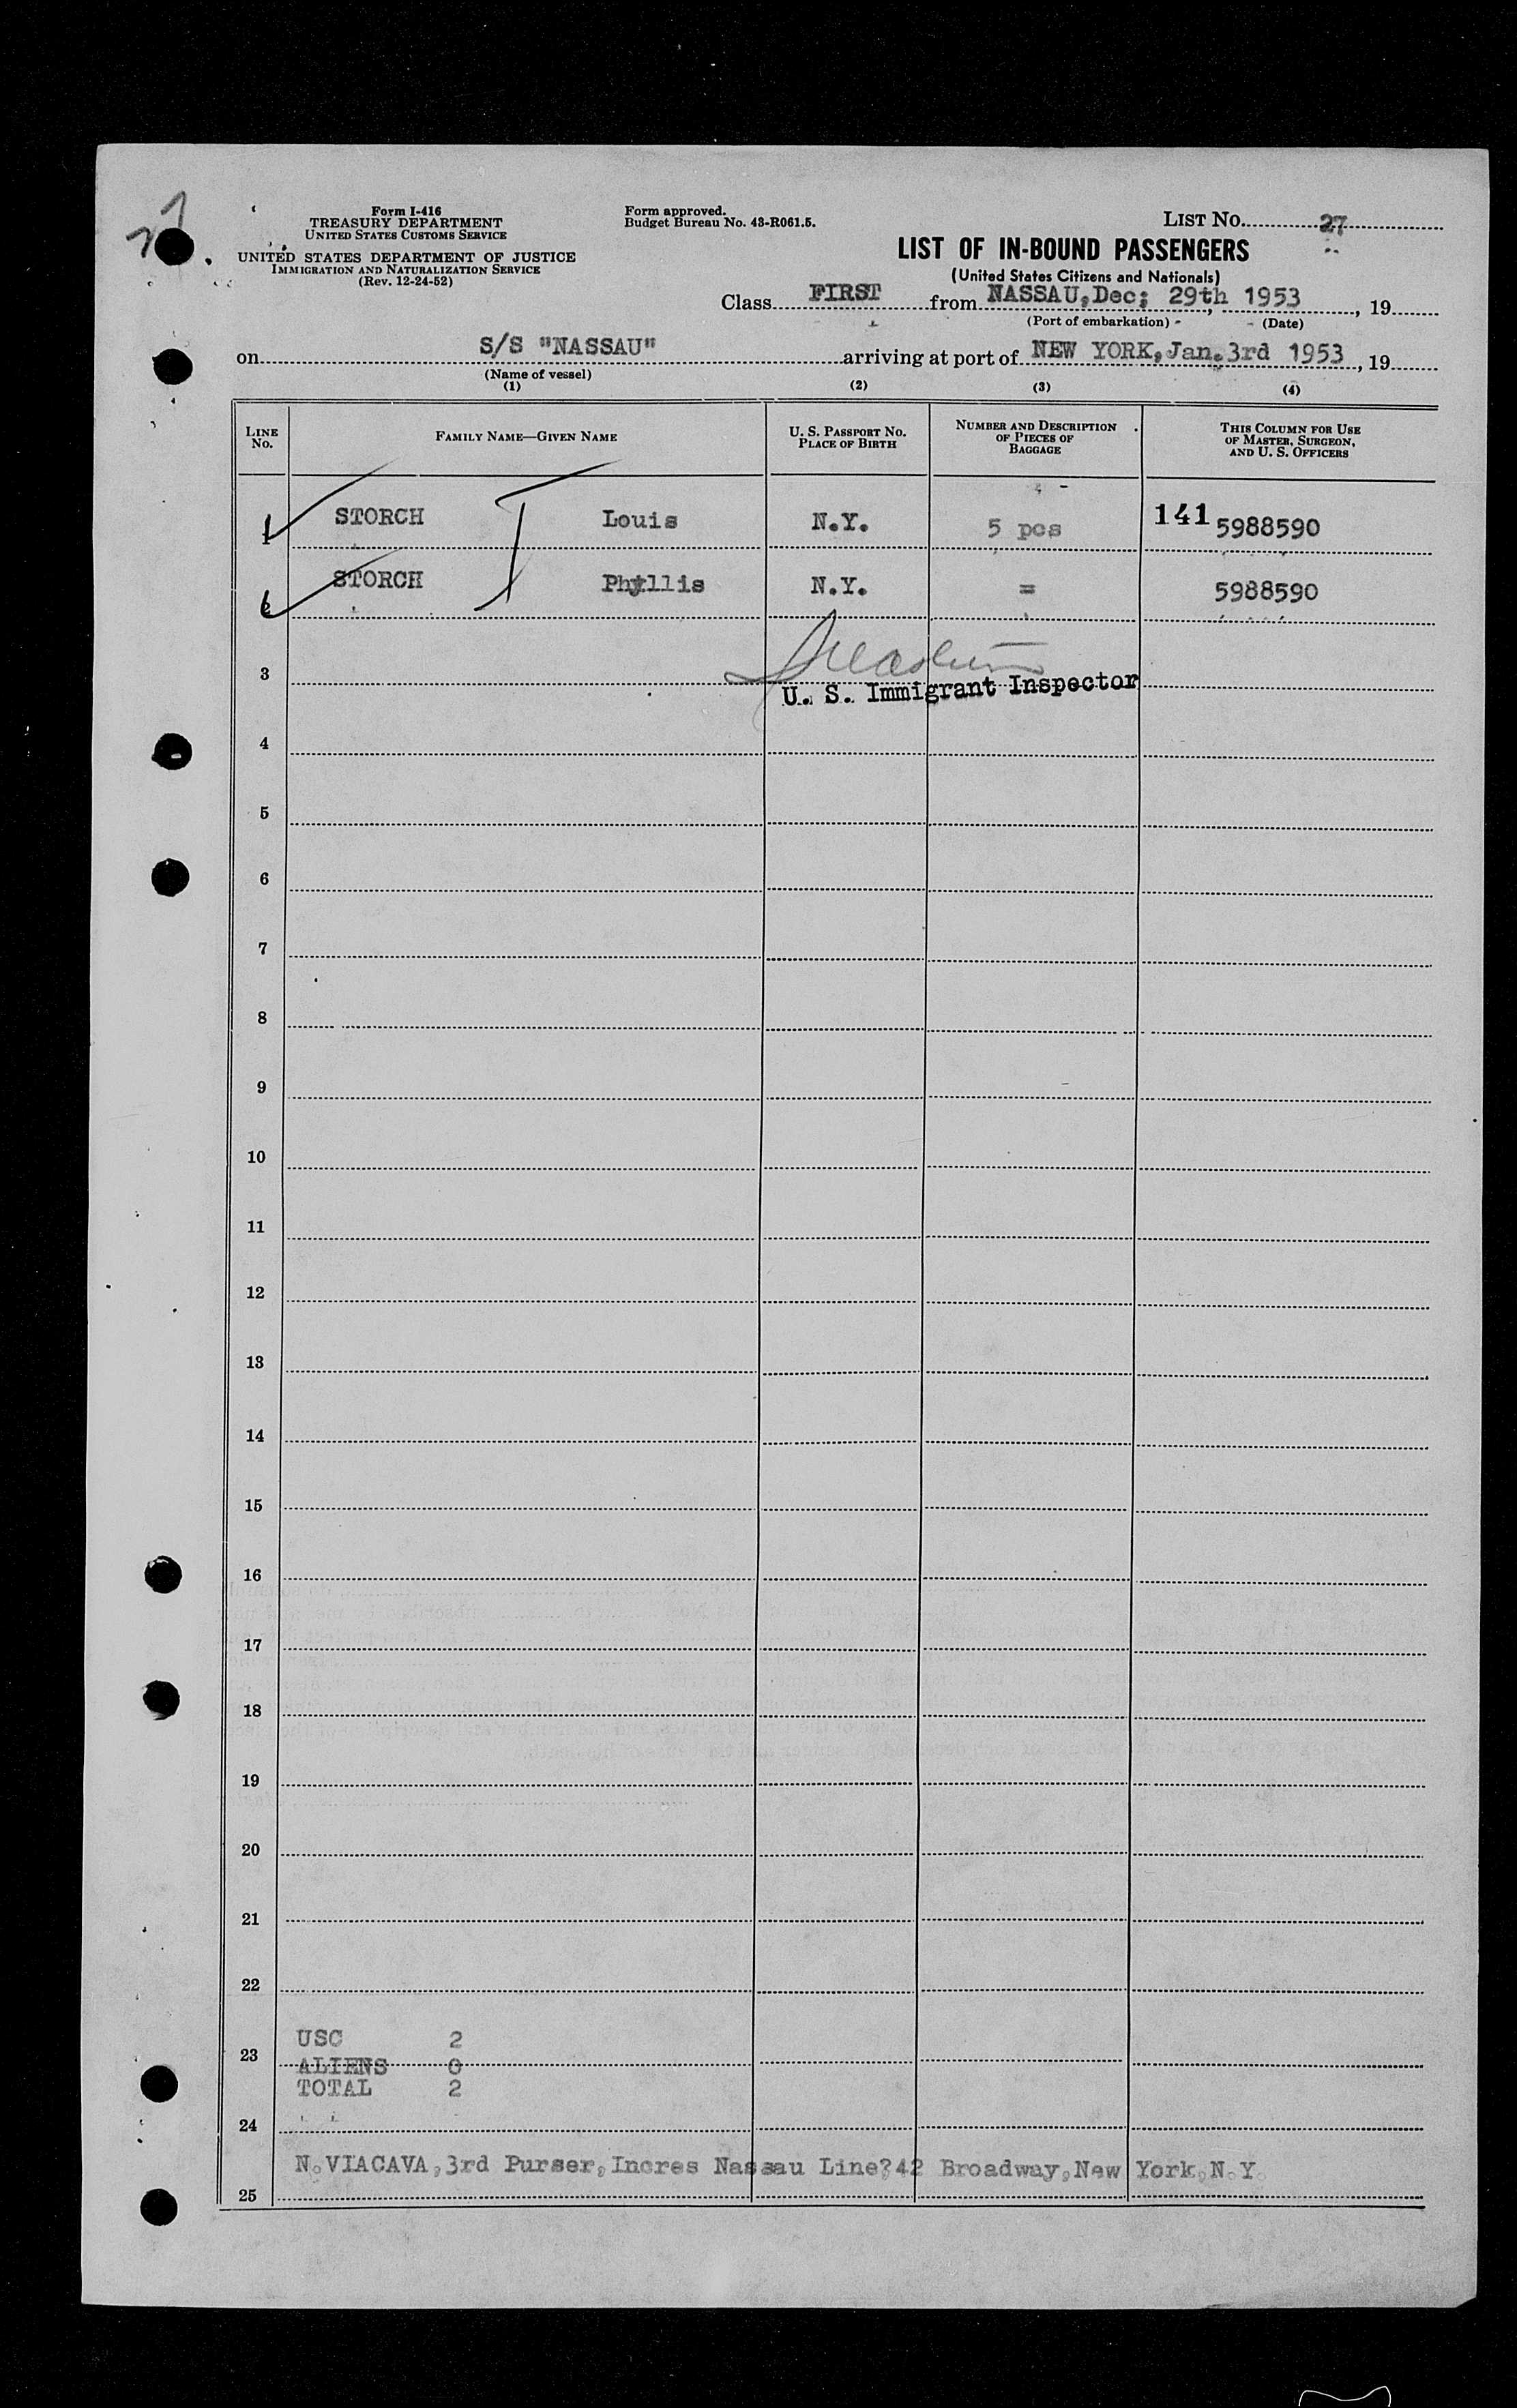 27
Form I-416
TREASURY DEPARTMENT
UNITED STATES CUSTOMS SERVICE
UNITED STATES DEPARTMENT OF JUSTICE
IMMIGRATION AND NATURALIZATION SERVICE
(Rev. 12-24-52)
Form approved.
Budget Bureau No. 43-R061.5.
LIST No. 27
LIST OF IN-BOUND PASSENGERS
(United States Citizens and Nationals)
Class FIRST from NASSAU, Dec; 29th 1953, 19
(Port of embarkation) (Date)
on S/S "NASSAU" arriving at port of NEW YORK, Jan. 3rd 1953, 19
(Name of vessel)
(1) (2) (3) (4)
LINE No. FAMILY NAME—GIVEN NAME U. S. PASSPORT NO. PLACE OF BIRTH NUMBER AND DESCRIPTION OF PIECES OF BAGGAGE THIS COLUMN FOR USE OF MASTER, SURGEON, AND U. S. OFFICERS
1 STORCH Louis N.Y. 5 pcs 141 5988590
2 STORCH Phyllis N.Y. = 5988590
3
U. S. Immigrant Inspector
4
5
6
7
8
9
10
11
12
13
14
15
16
17
18
19
20
21
22
USC 2
23
ALIENS 0
TOTAL 2
24
N. VIACAVA, 3rd Purser, Incres Nassau Line?42 Broadway, New York, N.Y.
25